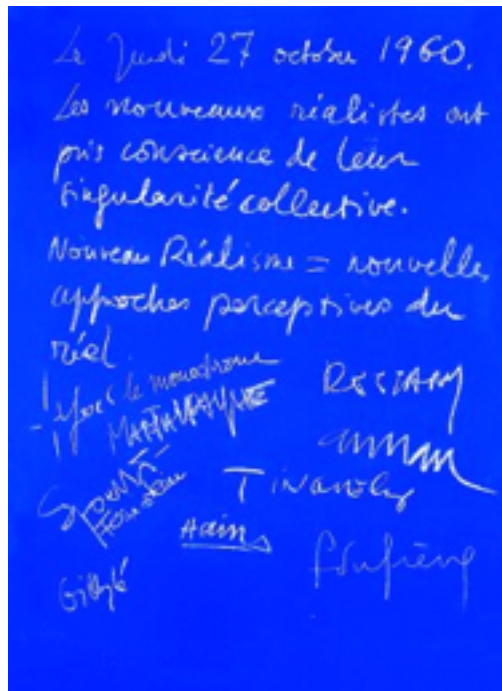 Le Jeudi 27 octobre 1960.
Les nouveaux réalistes ont
pris conscience de leur
singularité collective.
Nouveau Réalisme = nouvelles
approches perceptives du
réel.
Yves le monochrome
RESTANY
Martial Raysse
Arman
Spoerri
Tinguely
Hains
Dufrêne
Villeglé